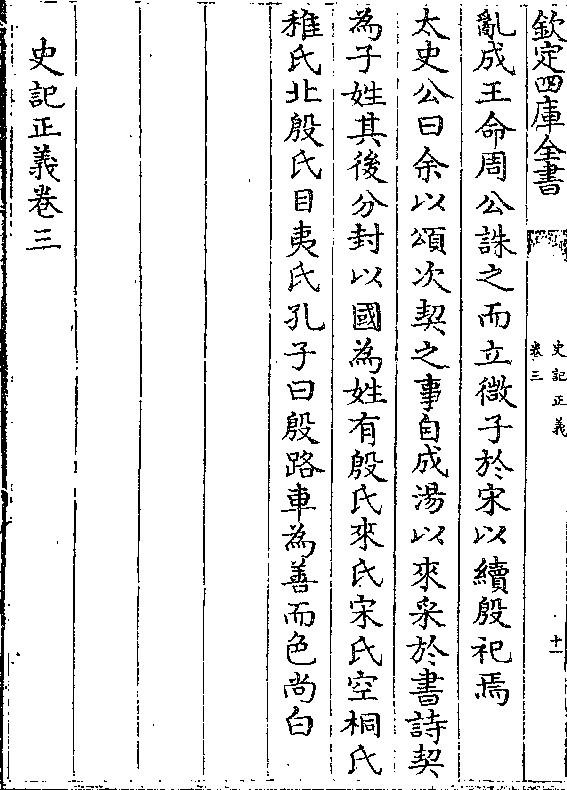 欽定四庫全書
史記正義
卷三
十一
亂成王命周公誅之而立微子於宋以續殷祀焉
太史公曰余以頌次契之事自成湯以來采於書詩契
為子姓其後分封以國為姓有殷氏來氏宋氏空桐氏
稚氏北殷氏目夷氏孔子曰殷路車為善而色尚白
史記正義卷三